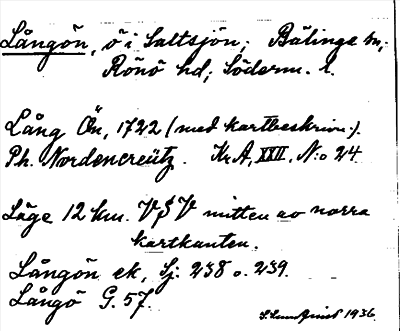 Långön, ö i Saltsjön; Bälinge sn;
Rönö hd; Söderm. l.
Lång Ön, 1722 (med kartbeskrivn:).
Ph. Nordencreütz. Kr. A, XXII, N:o 24
Läge 12 km. V§V mitten av norra
kartkanten.
Långön ek, Sj: 238 o. 239.
Långö G. 57.
S. Lundqvist 1936